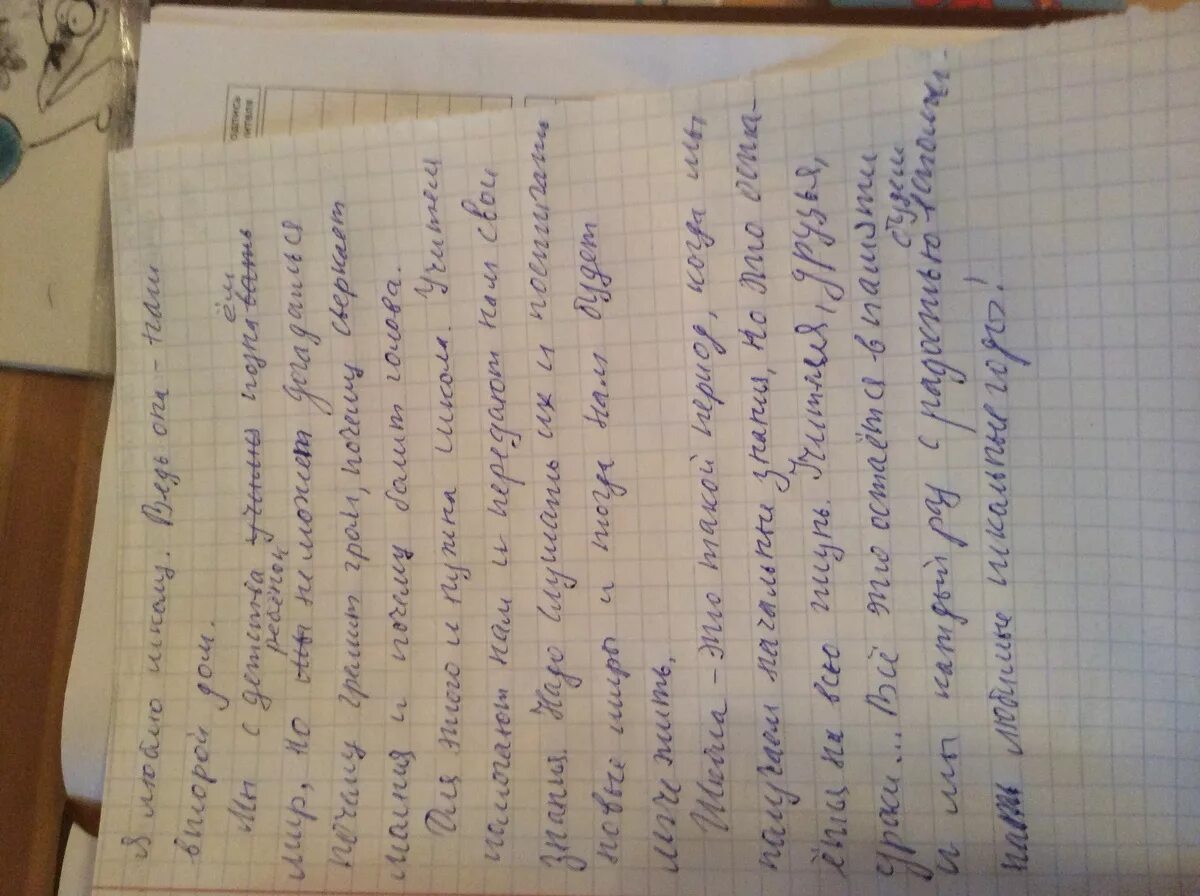 Я люблю школу. Ведь она - наш
второй дом.
Мы с детства учимы познаваьть ём
мир, но мы ребёнок не может догадаться
почему гремит гром, почему сверкает
молния и почему болит голова.
Для этого и нужна школа. Учителя
помогают нам и передают нам свои
знания. Надо слушать их и постигать
новые миры и тогда нам будет
легче жить.
Школа - это такой период, когда мы,
получаем начальные знания, но это оста-
ётся на всю жизнь. Учителя, друзья,
уроки... Всё это остаётся в памяти
и мы каждый раз с радостью будем вспоми-
нать любимые школьные годы!
подпись